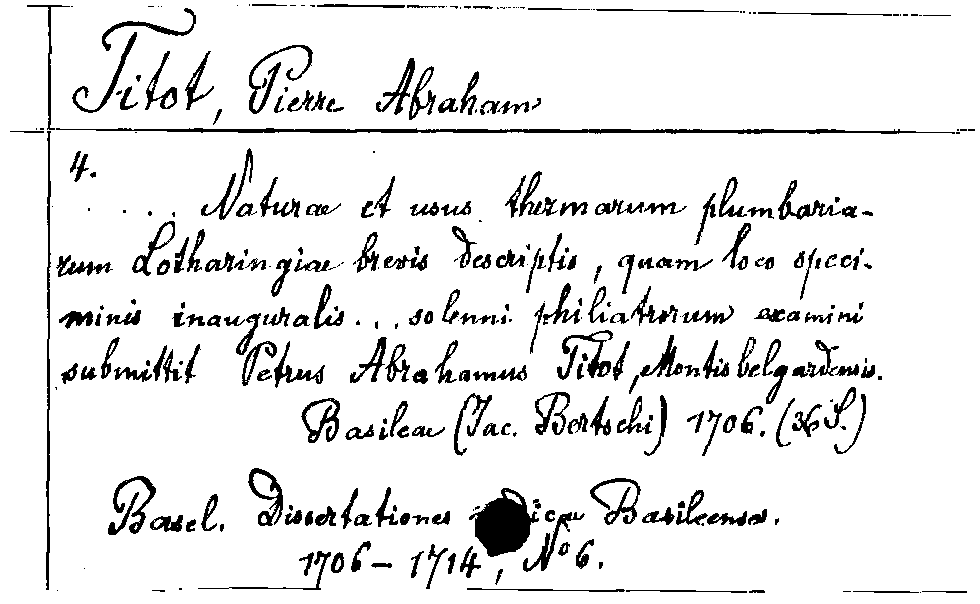 Titot, Pierre Abraham
4.
. . . . Naturae et usus thermarum plumbaria-
rum Lotharingiae brevis descriptio, quam loco speci-
minis inauguralis . . . solenni philiatrorum examini
submittit Petrus Abrahamus Titot, Montisbelgardensis.
Basileae (Jac. Bertschi) 1706. (36 S.)
Basel. Dissertationes Basileenses.
1706 – 1714, No 6.